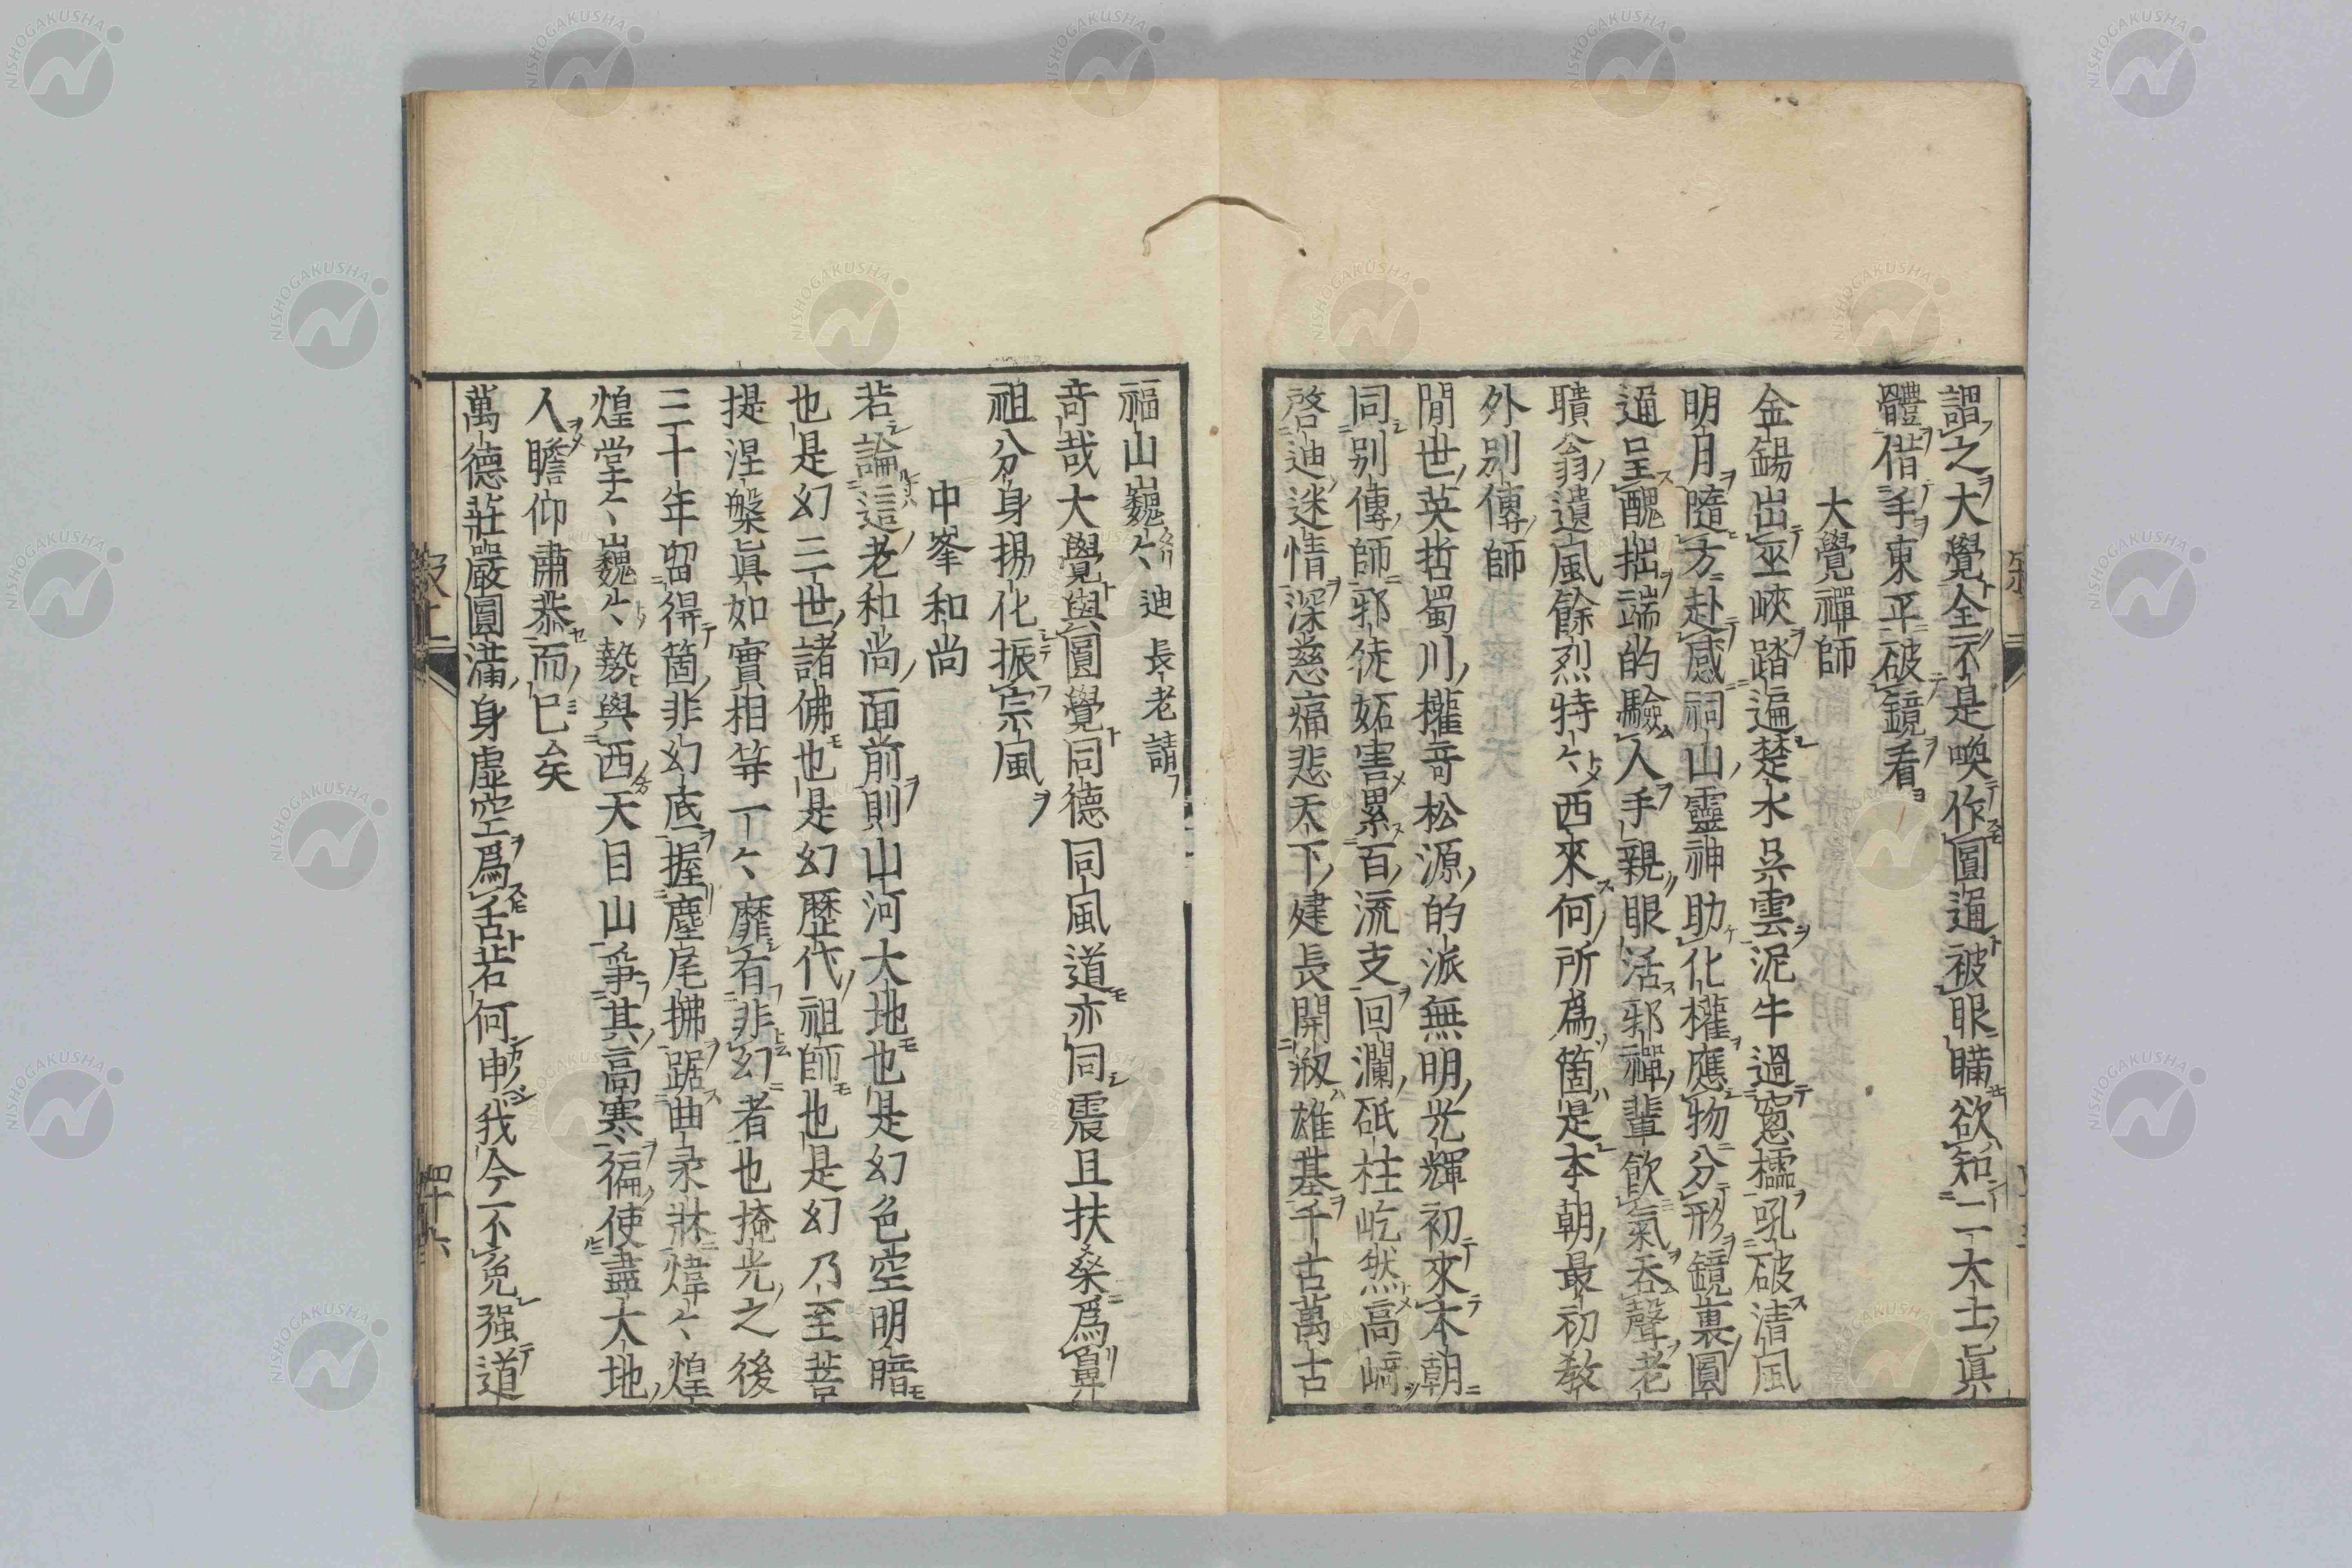 謂之大覺全不是喚作圓通被眼瞞欲知二大士眞
體借手東平破鏡看
大覺禪師
金錫出巫峽踏遍楚水吳雲泥牛過窓櫺吼破清風
明月隨方赴感祠山靈神助化權應物分形鏡裏圓
通呈醜拙端的驗人手親眼活邪禪輩飮氣吞聲老
聵翁遺風餘烈特々西來何所爲箇是本朝最初敎
外別傳師
間世英哲蜀川權奇松源的派無明光輝初來本朝
同別傳師邪徒妬害累百流支回瀾砥柱屹然高﨑
啓迪迷情深慈痛悲天下建長開叢雄基千古萬古
福山巍々 迪長老請
奇哉大覺與圓覺同德同風道亦同震旦扶桑爲鼻
祖分身揚化振宗風
中峯和尚
若論這老和尚面前則山河大地也是幻色空明暗
也是幻三世諸佛也是幻歷代祖師也是幻乃至菩
提涅槃眞如實相等一々靡有非幻者也掩光之後
二十年留得箇非幻底握塵尾拂踞曲彔牀煒々煌
煌堂々巍々勢與西天目山爭其高寒徧使盡大地
人瞻仰肅恭而已矣
萬德莊嚴圓滿身虛空爲舌若何申我今不免强道
四十六